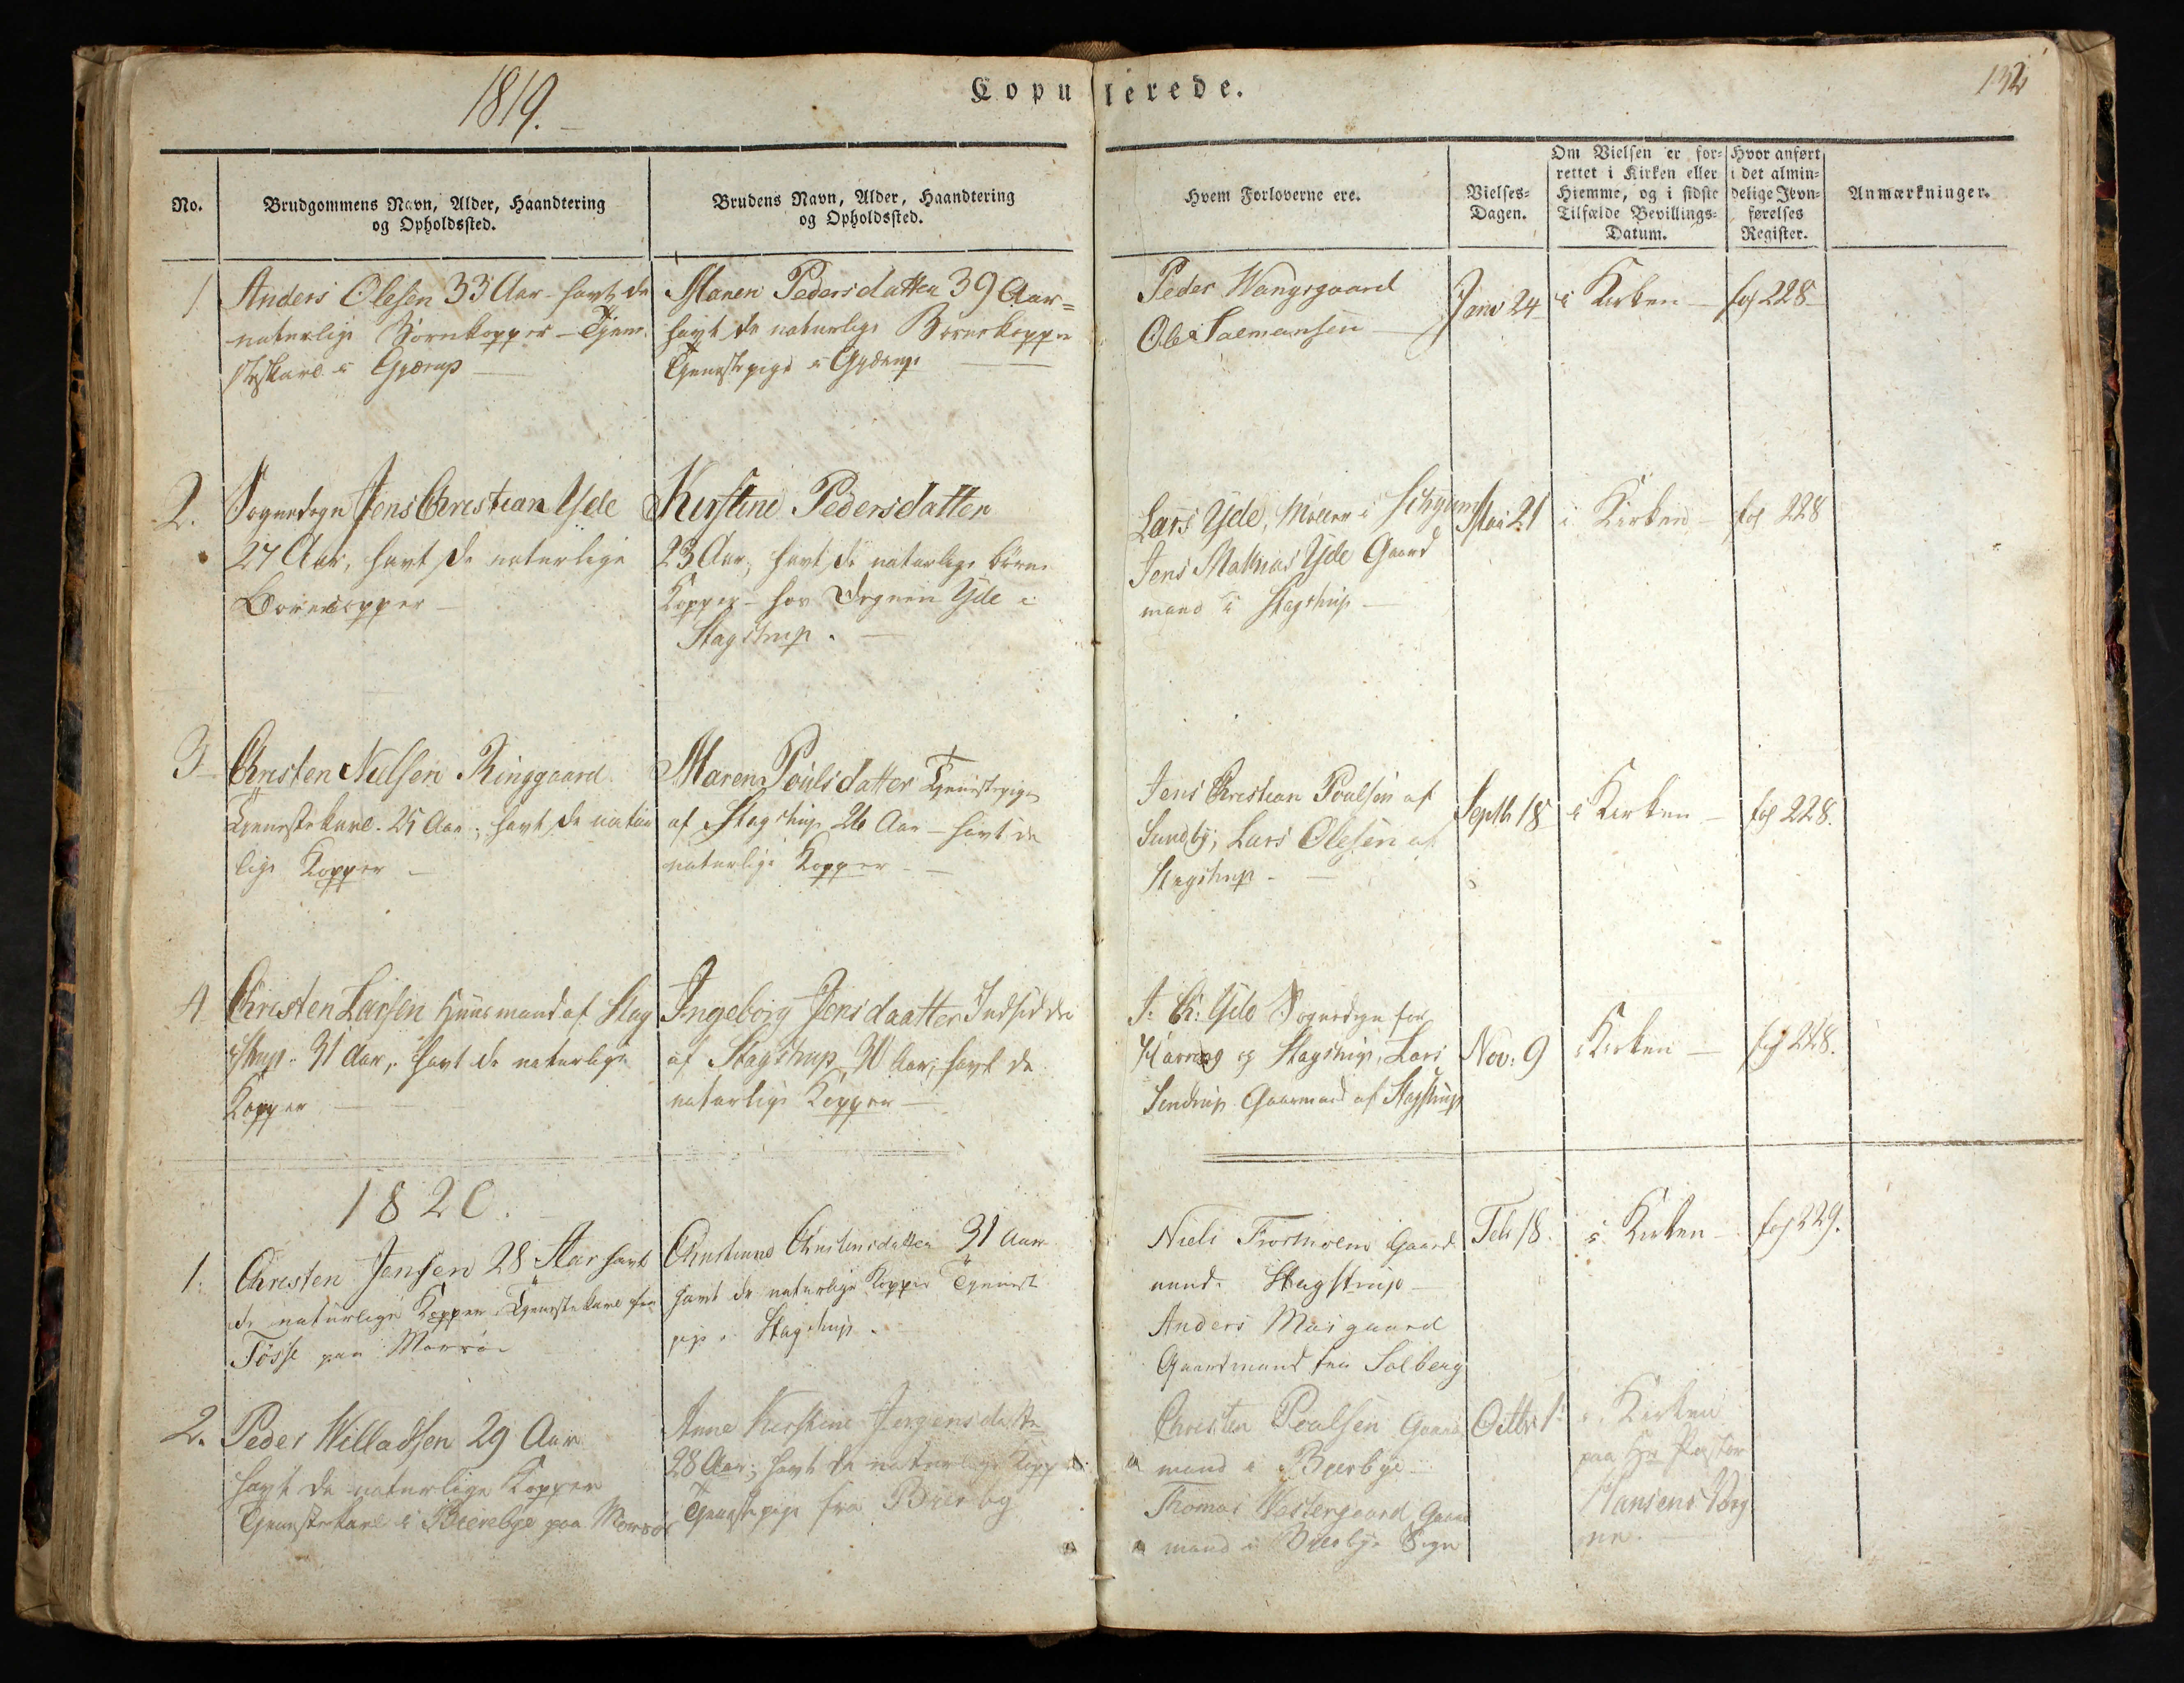 1819.
Kopulerede.
132
No.
Brudgommens Navn, Alder, Haandtering
og Opholdssted.
Brudens Navn, Alder, Haandtering
og Opholdssted.
Hvem Forloverne ere.
Vielses-
Dagen.
Om Vielsen er for-
rettet i Kirken eller
Hiemme, og i sidste
Tilfælde Bevillings-
Datum.
Hvor anført
i det almin-
delige Jevn-
førelses
Register.
Anmærkninger.
1
Anders Olesen 33 Aar havt de
naturlige Børnekopper - Tjene-
stekarl i Gjærup
Maren Pedersdatter 39 Aar
havt de naturlige Børnekopper
Tjenestepige i Gjærup
Peder Wangsgaard
Ole Salmonsen
Janv 24
i Kirken
fol 228
2.
Sognedegn Jens Christian Yde
27 Aar, havt de naturlige
Børnekopper
Kirstine Pedersdatter
23 Aar, havt de naturlige børne
Kopper - hos Degnen Yde i
Stagstrup.
Lars Yde, Møller i
Jens Mathias Yde Gaard
mand i Stagstrup
Mai 21
i Kirken
fol 228
3
Christen Nielsen Ringgaard
Tjenestekarl. 25 Aar, havt de natur
lige Kopper
Maren Poulsdatter Tjenestepige
af Stagstrup 26 Aar - havt de
naturlige Kopper
Jens Christian Poulsen af
Sundby, Lars Olesen af
Stagstrup
Septb 18
i Kirken
fol 228.
4
Christen Larsen Huusmand af Stag
strup. 31 Aar, havt de naturlige
Kopper
Ingeborg Jensdaatter Indsidder
af Stagstrup 30 Aar, havt de
naturlige Kopper
J. Ch. Yde Sognedegn for
Harring og Stagstrup, Lars
Gaarmand af Stagstrup
Nov. 9
i Kirken
fol 228.
1820.
1.
Christen Jensen 28 Aar havt
de naturlige Kopper Tjenestekarl fra
Tøsse paa Morsøe
Christiane Christensdatter 31 Aar
havt de naturlige Kopper Tjeneste
pige i Stagstrup.
Niels Gaard
mand i Stagstrup
Anders Musgaard
Gaardmand fra Solberg
Feb 18.
i Kirken
fol 229.
2.
Peder Willadsen 29 Aar
havt de naturlige Kopper
Tjenestekarl i Bierebye paa Morsøe
Anne Kirstine Jørgensdatter
28 Aar; havt de naturlige Kopper
Tjenestepige fra Bierbye
Christen Poulsen Gaard
mand i Bierbye
Thomas Westergaard Gaard
mand i Bierbye Sogn
Octbr 1
i Kirken
paa Hr Pastor
Hansens Veg
ne.